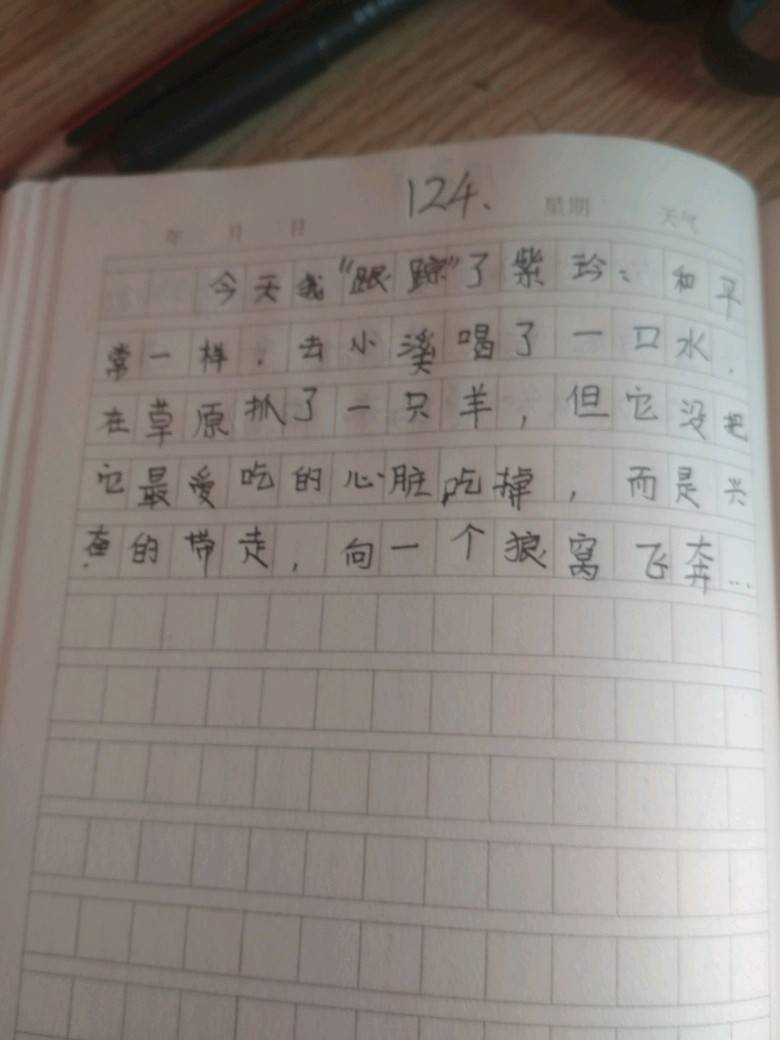 124.
年 月 日 星期 天气
今天我“跟踪”了紫玲：和平
常一样．去小溪喝了一口水，
在草原抓了一只羊，但它没把
它最爱吃的心脏吃掉，而是兴
奋的带走，向一个狼窝飞奔…